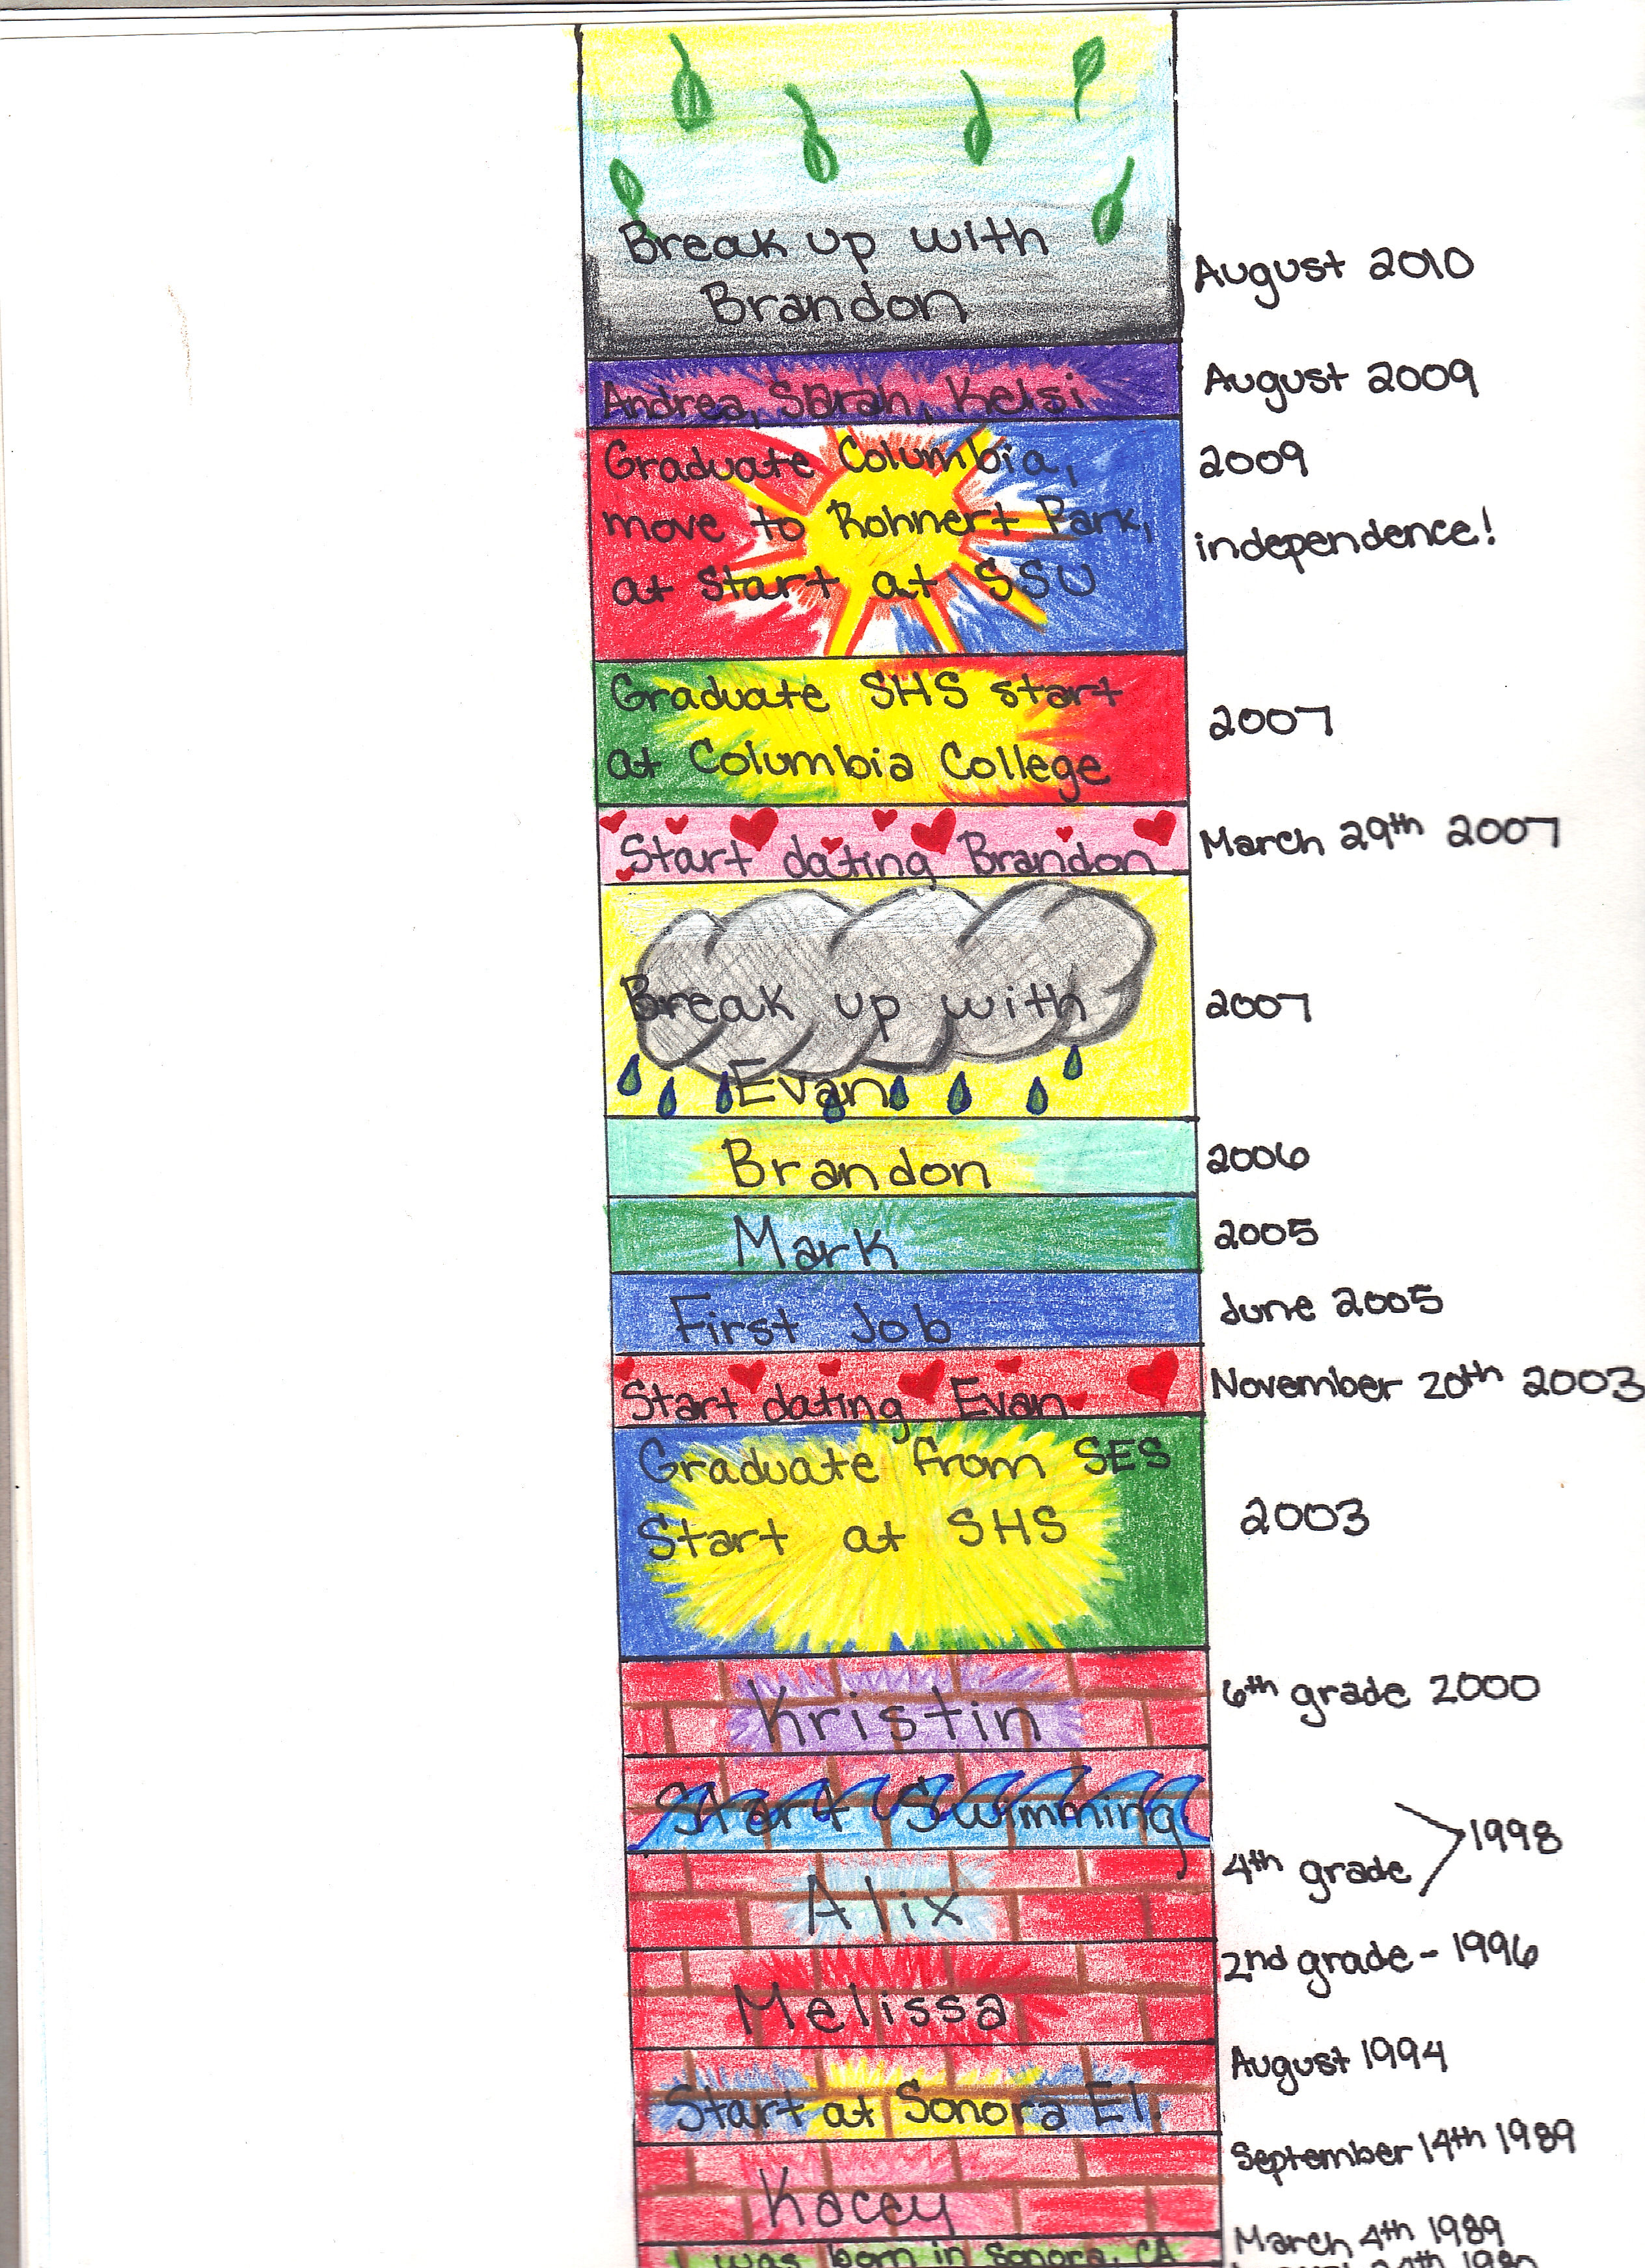 Break up with
Brandon
August 2010
Andrea, Sarah, Kelsi
August 2009
Graduate Columbia,
move to Rohnert Park,
at start at SSU
2009
independence!
Graduate SHS start
at Columbia College
2007
Start dating Brandon
March 29th 2007
Break up with
Evan
2007
Brandon
2006
Mark
2005
First Job
June 2005
Start dating Evan
November 20th 2003
Graduate from SES
Start at SHS
2003
Kristin
6th grade 2000
Start Swimming
Alix
4th grade
1998
Melissa
2nd grade - 1996
Start at Sonora El.
August 1994
Kacey
September 14th 1989
was born in Sonora, CA
March 4th 1989